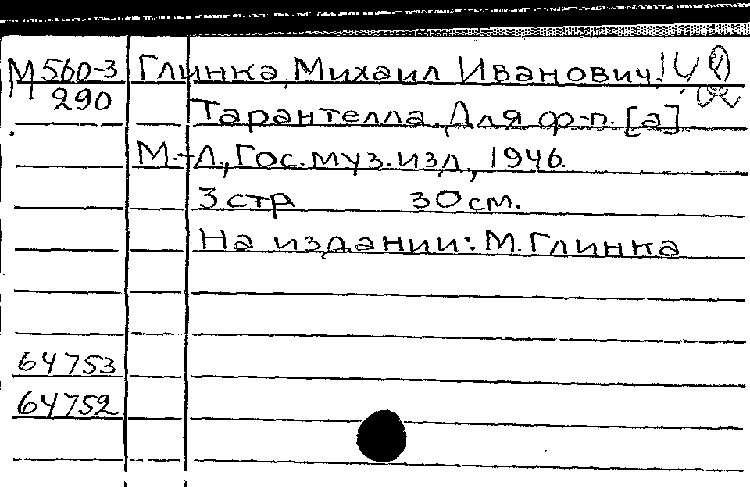 М560-3 Глинка, Михаил Иванович.
290 Тарантелла. Для ф-п. [а]
М.-Л., Гос. муз. изд., 1946.
3 стр 30 см.
На издании: М. Глинка
64753
64752